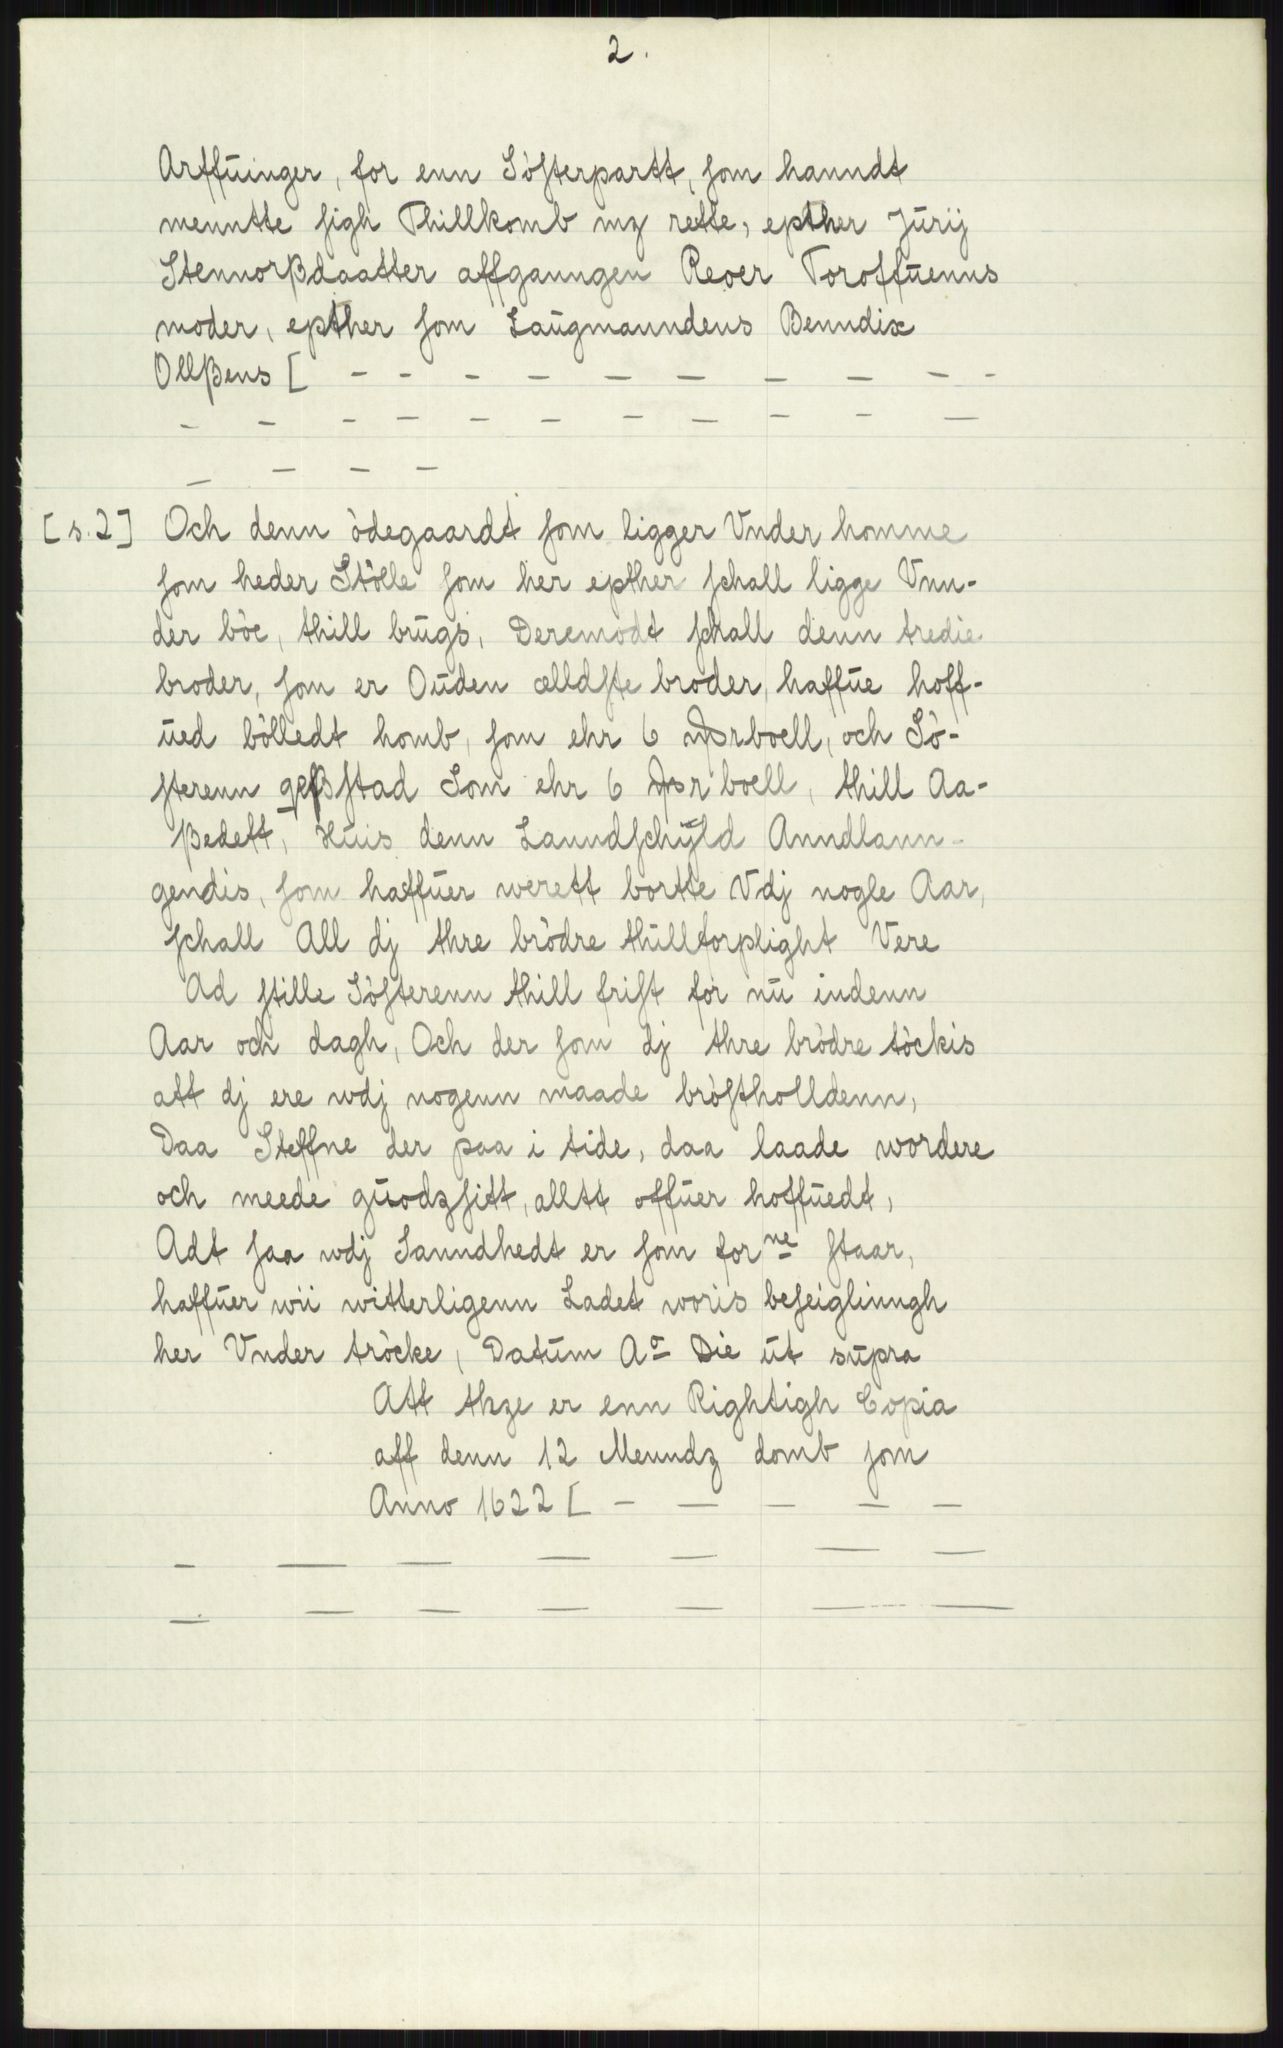 2.
Arffūinger, for enn Sòſterpartt, ſom hanndt
menntte ſigh Thillkomb mz rette, epther Jūrij
Stennorßdaatter affganngen Reoer Toroffūenns
moder, epther ſom Laūgmanndens Benndix
Ollßens [ – – – – – – – – – –
– – – – – – – – – – –
– – – –
[s.2] Och denn òdegaardt ſom ligger Vnder homme
ſom heder Stòlle ſom her epther ſchall ligge Vnn-
der bòe, thill brūgs, Deremodt ſchall denn tredie
broder, ſom er Oūden ælldſte broder, haffūe hoff-
ūed bòlledt homb, ſom ehr 6 boell, och Sò-
ſterenn ſtad Som ehr 6 boell, thill Aa-
ßedett, Hūis denn Lanndſchÿld Anndlann-
gendis, ſom haffūer werett bortte Vdj nogle Aar,
ſchall All dj thre bròdre thūllforplight Vere
Ad ſtille Sòſterenn thill friſt for nū indenn
Aar och dagh, Och der ſom dj thre bròdre tòckis
att dj ere wdj nogenn maade bròſtholldenn,
Daa Steffne der paa i tide, daa laade wordere
och meede gūodzſitt, alltt offūer hoffūedt,
Adt ſaa wdj Sanndhedt er ſom forne ſtaar,
haffūer wii witterligenn Ladet woris beſeiglinngh
her Vnder tròcke, Datūm Ao Die ūt sūpra
Att thze er enn Rightigh Copia
aff denn 12 Menndz domb ſom
Anno 1622 [ – – – – –
– – – – – – –
– – – – – – –